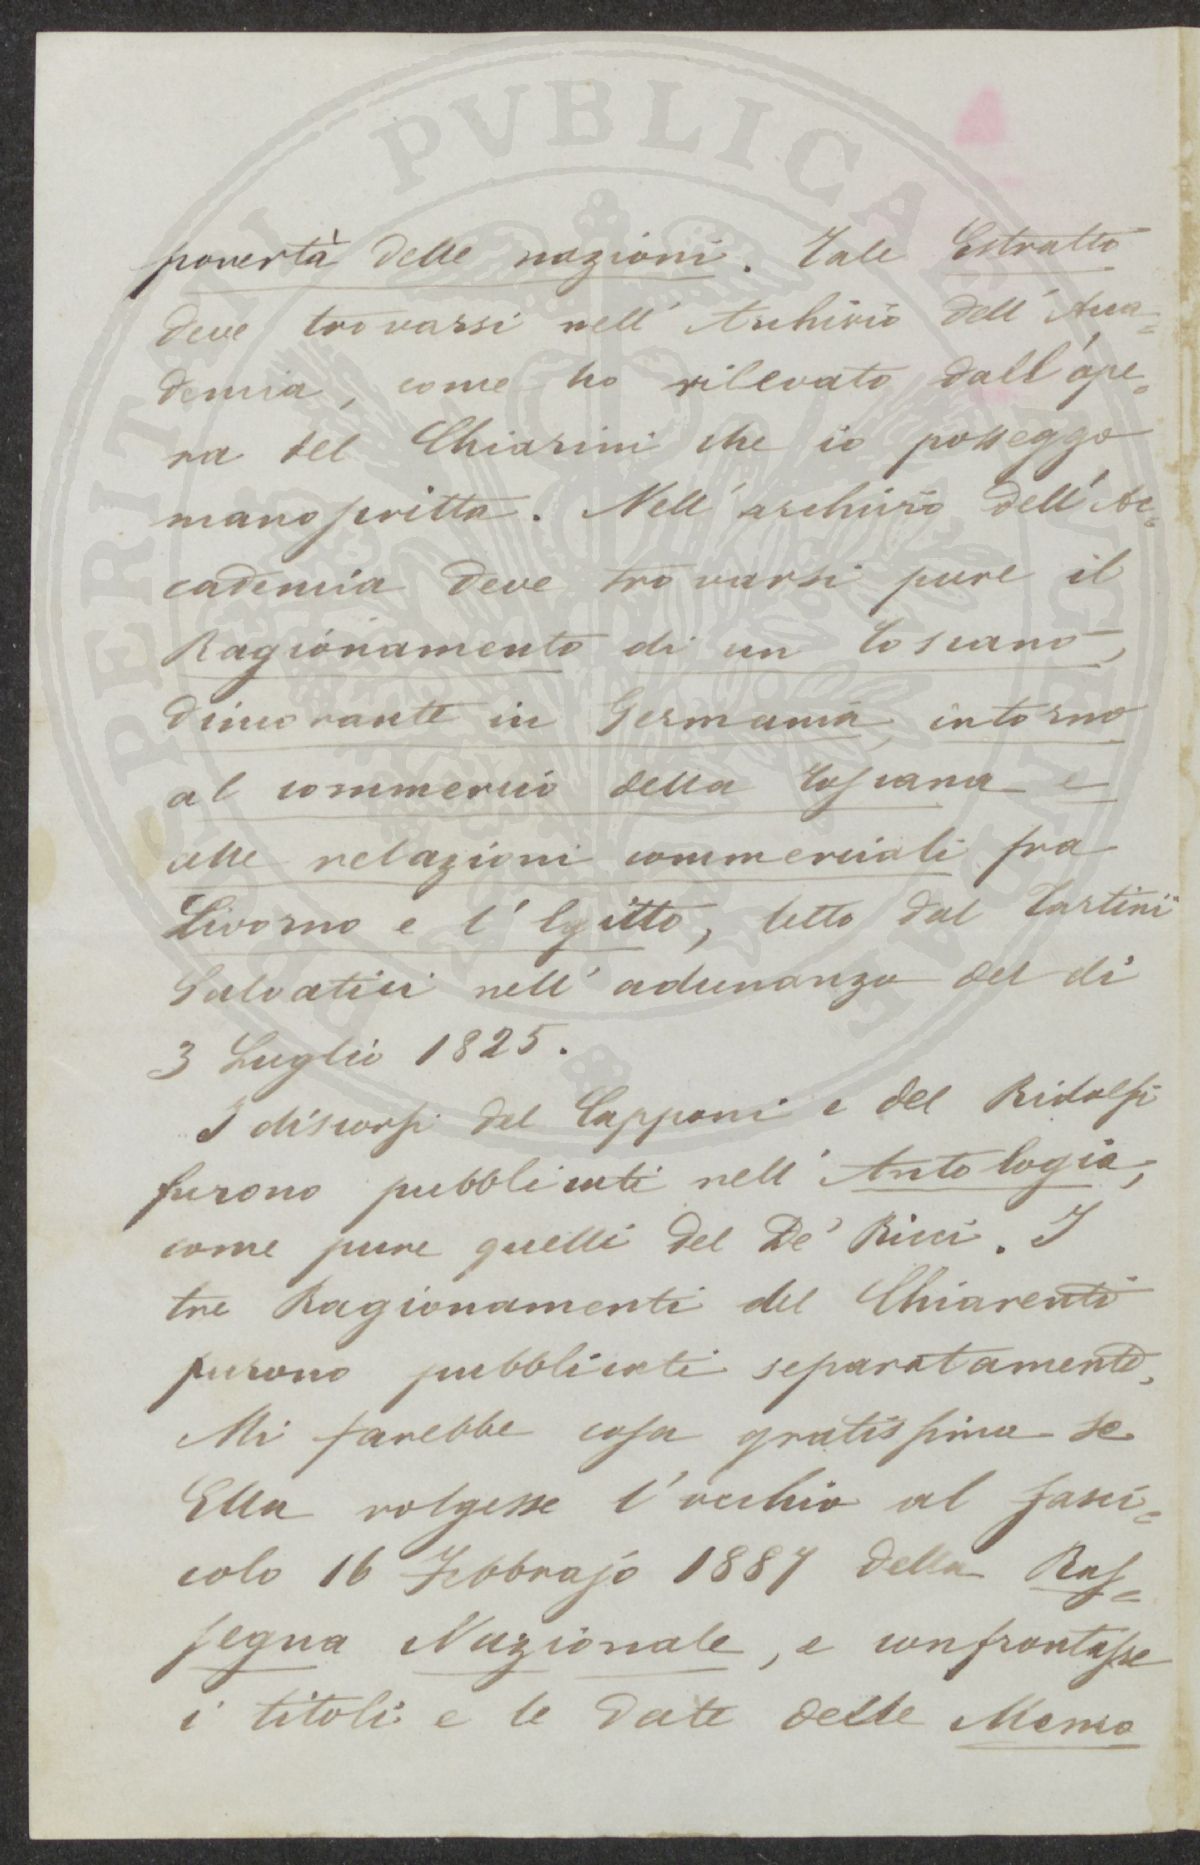 povertà delle nazioni. Tale Estratto
deve trovarsi nell'Archivio dell'Acca=
demia, come ho rilevato dall'ope=
ra del Chiarini che io posseggo
manoscritta. Nell'archivio dell'Ac=
cademia deve trovarsi pure il
Ragionamento di un toscano,
dimorante in Germania, intorno
al commercio della Toscana e
alle relazioni commerciali fra
Livorno e l'Egitto, letto dal Tartini
Salvatici nell'adunanza del dì
3 Luglio 1825.
I discorsi del Capponi e del Ridolfi
furono pubblicati nell'Antologia,
come pure quelli del De' Ricci. I
tre Ragionamenti del Chiarenti
furono pubblicati separatamente.
Mi farebbe cosa gratissima se
Ella volgesse l'occhio al fasci=
colo 16 Febbrajo 1887 della Ras=
segna Nazionale, e confrontasse
i titoli e le date delle Memo
PROSPERITATI PVBLICAE AVGENDAE